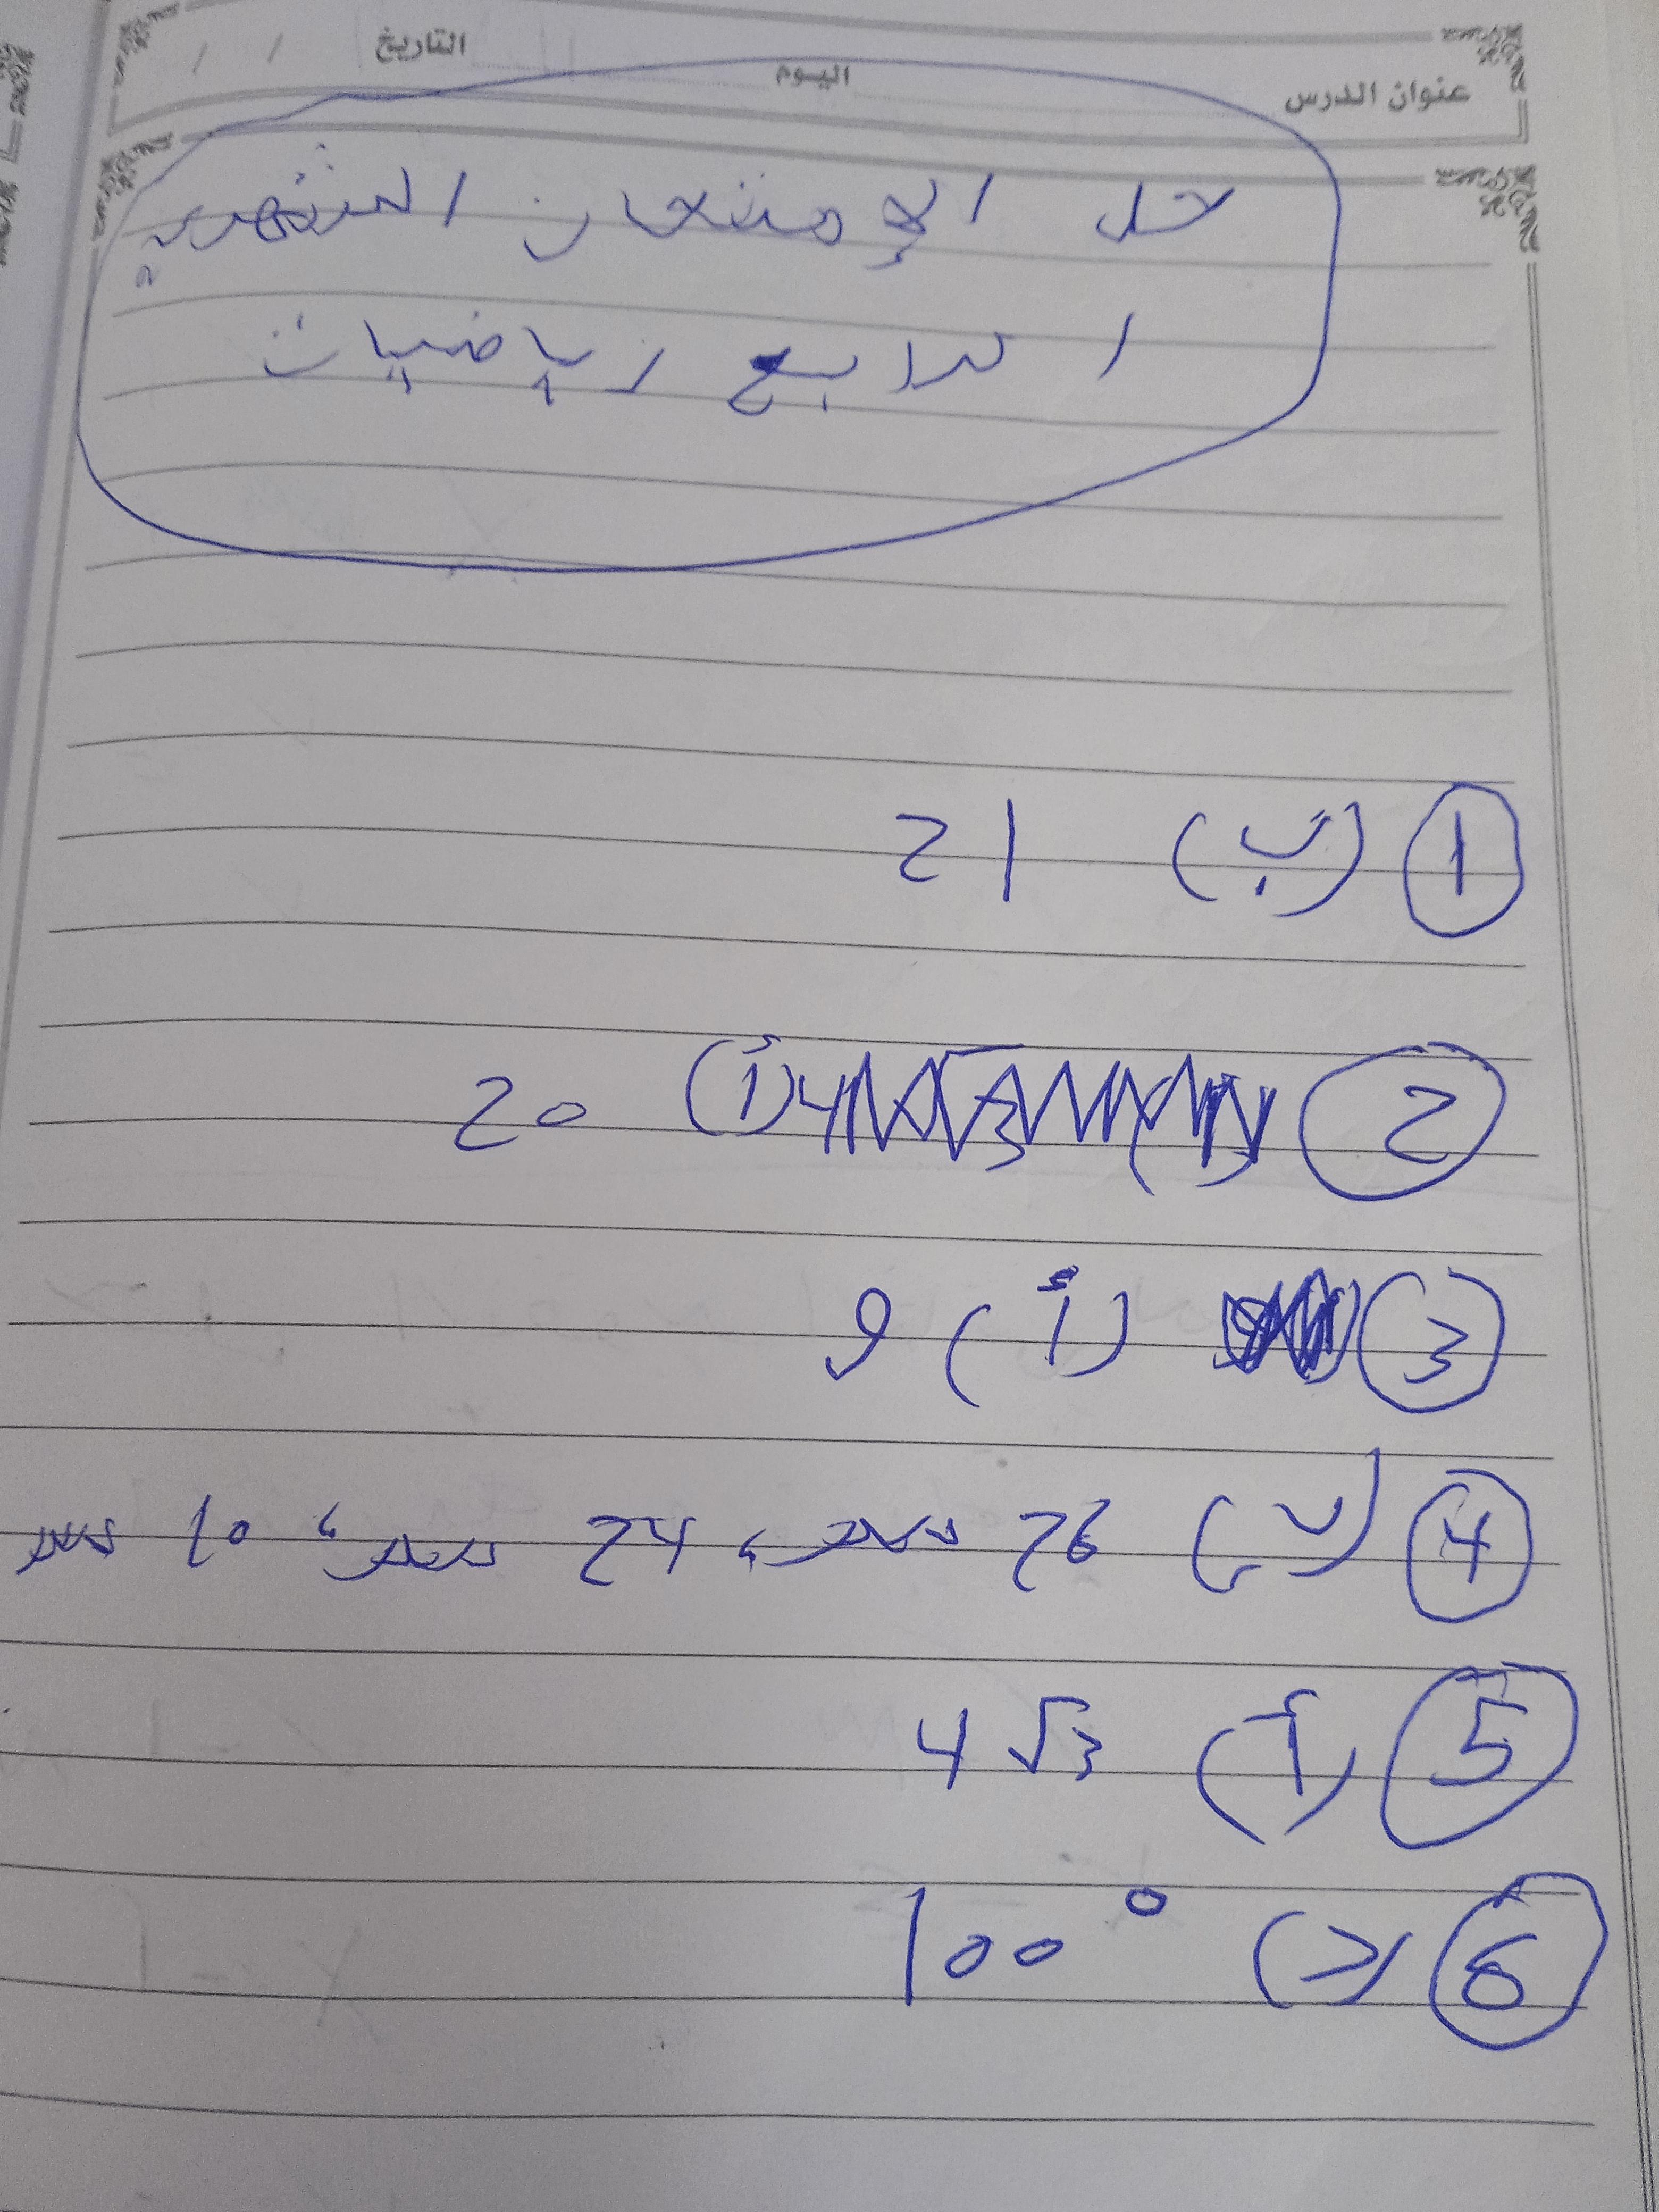 عنوان الدرس اليوم التاريخ / /
حل الإمتحان الشهري
الرابع رياضيات
1 (ب) 21
2 (أ) 20
3 (أ) 9
4 (ب) 26 سم، 24 سم، 10 سم
5 (أ) 4√3
6 (د) 100°